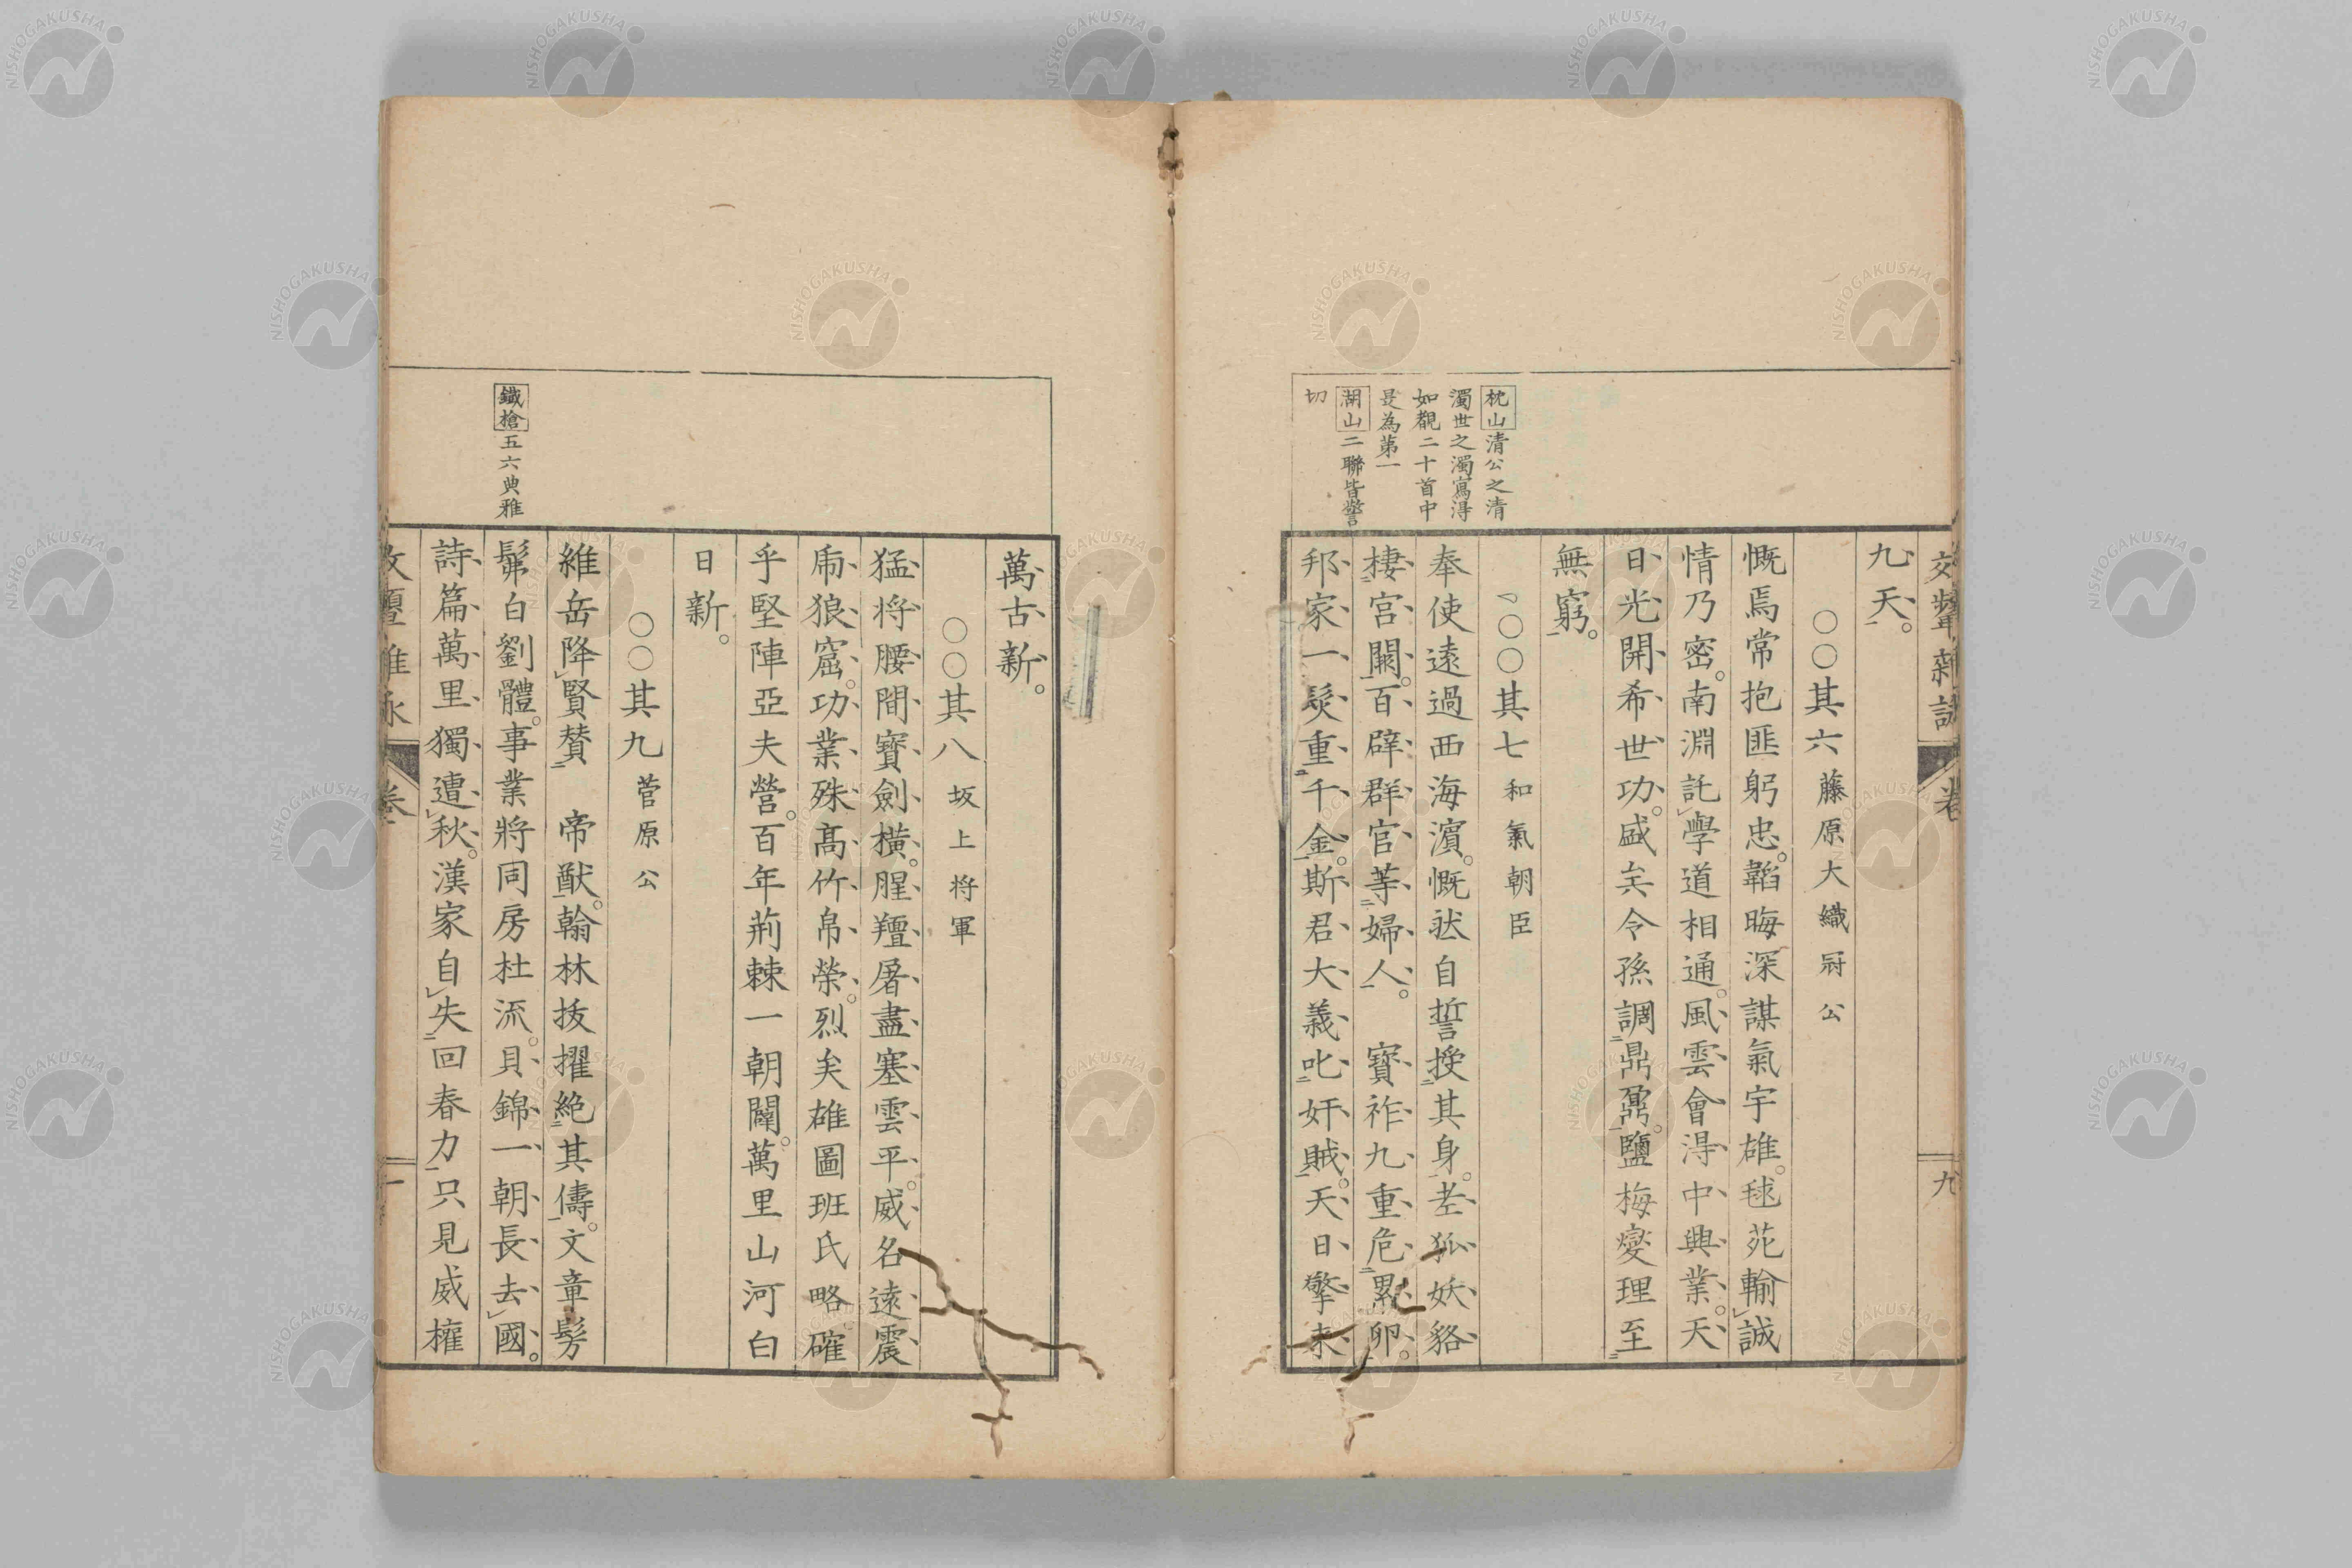 九
九天。
〇〇其六 藤原大織冠公
慨焉常抱匪躬忠。韜晦深謀氣宇雄。毬苑輸誠
情乃密。南淵託學道相通。風雲會得中興業。天
日光開希世功。盛矣令孫調鼎鼐。鹽梅燮理至
無窮。
〇〇其七 和氣朝臣
奉使遠過西海濱。慨然自誓授其身。老狐妖貉
棲宮闕。百辟群官等婦人。 寳祚九重危累卵。
邦家一髮重千金。斯君大義叱奸賊。天日擎来
枕山清公之清
濁世之濁寫得
如覩二十首中
是為第一
湖山二聯皆警
切
萬古新。
〇〇其八 坂上将軍
猛将腰間寳劍橫。腥羶屠盡塞雲平。威名遠震
乕狼窟。功業殊髙竹帛榮。烈矣雄圖班氏略確
乎堅陣亞夫營。百年荊棘一朝闢。萬里山河白
日新。
〇〇其九 菅原公
維岳降賢賛 帝猷。翰林拔擢絶其儔。文章髣
髴白劉體。事業將同房杜流。貝錦一朝長去國。
詩篇萬里獨遭秋。漢家自失回春力只見威權
鐵槍五六典雅